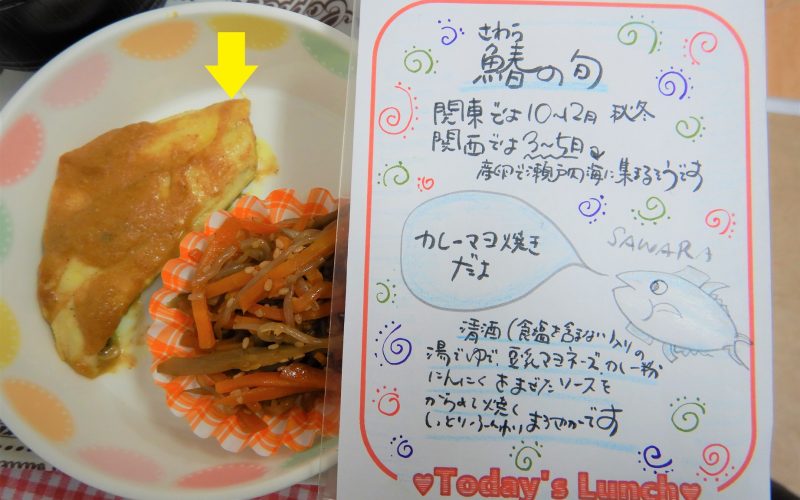 さわら
鰆の旬
関東では10〜12月 秋冬
関西では3〜5月
産卵で瀬戸内海に集まるそうです
カレーマヨ焼き
だよ
SAWARA
清酒(食塩を含まない)入りの
湯でゆで、豆乳マヨネーズ、カレー粉
にんにくをまぜたソースを
からめて焼く
しっとり・ふんわり まろやかです
♥Today's Lunch♥